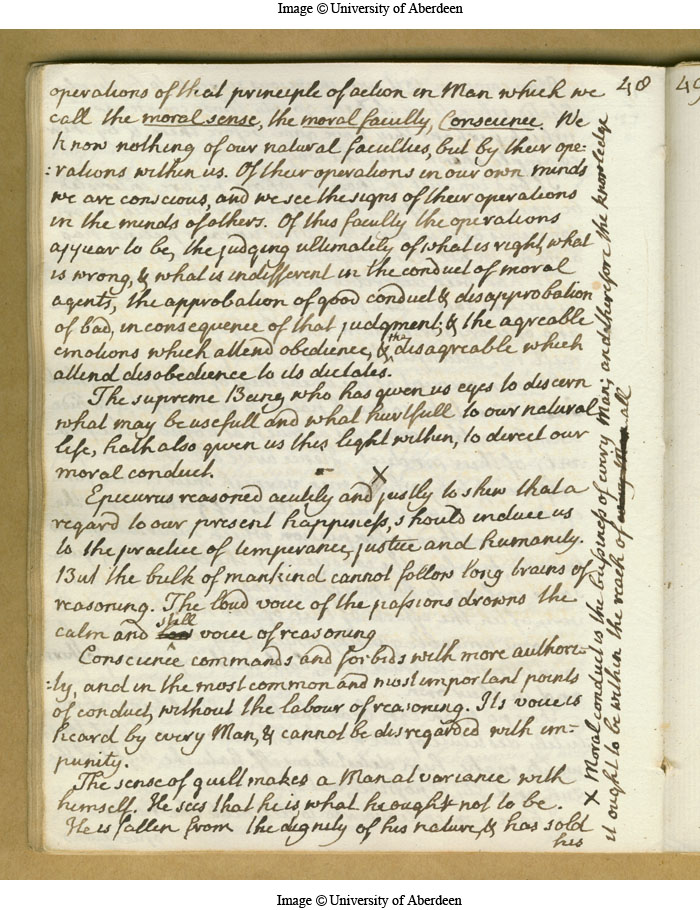 Image © University of Aberdeen
48
49
operations of that principle of action in Man which we
call the moral sense, the moral faculty, Conscience. We
know nothing of our natural faculties, but by their ope-
:rations within us. Of their operations in our own minds
we are conscious, and we see the signs of their operations
in the minds of others. Of this faculty the operations
appear to be, the judging ultimately of what is right, what
is wrong, & what is indifferent in the conduct of moral
agents, the approbation of good conduct & disapprobation
of bad, in consequence of that judgment; & the agreable
emotions which attend obedience, & the disagreable which
attend disobedience to its dictates.
The supreme Being, who has given us eyes to discern
what may be usefull and what hurtfull to our natural
life, hath also given us this light within, to direct our
moral conduct. - X
Epicurus reasoned acutely and justly to shew that a
regard to our present happiness, should induce us
to the practice of temperance, justice and humanity.
But the bulk of mankind cannot follow long trains of
reasoning. The loud voice of the passions drowns the
calm and still voice of reasoning
Conscience commands and forbids with more authori-
:ty, and in the most common and most important points
of conduct, without the labour of reasoning. Its voice is
heard by every Man, & cannot be disregarded with im-
punity.
The sense of guilt makes a Man at variance with
himself. He sees that he is what he ought not to be.
He is fallen from the dignity of his nature, & has sold
his
X Moral conduct is the business of every man; and therefore the knowledge
it ought to be within the reach of all
Image © University of Aberdeen